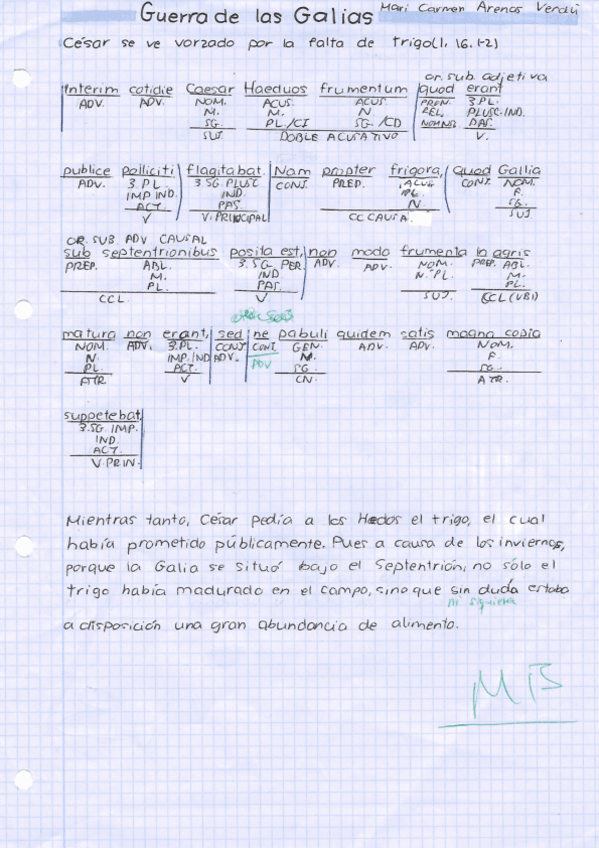 Guerra de las Galias Mari Carmen Arenas Verdú
César se ve vorzado por la falta de trigo(1, 16. 1-2)
or. sub. adjetiva
Interim cotidie Caesar Haeduos frumentum quod erant
ADV. ADV. NOM. ACUS. ACUS. PRON. 3.PL.
M. M. N REL. PLUSC. IND.
SG. PL./CI SG /CD NOM.NSG PAS.
SUJ. DOBLE ACUSATIVO V.
publice polliciti flagitabat. Nam propter frigora, quod Gallia
ADV. 3. PL 3 SG. PLUSC CONJ. PREP. ACUS. CONJ. NOM.
IMP IND. IND. PL. F.
ACT. PAS. N SG.
V V. PRINCIPAL CC CAUSA SUJ.
OR. SUB ADV CAUSAL
sub septentrionibus posita est, non modo frumenta in agris
PREP. ABL. 3. SG PER. ADV. ADV. NOM. PREP. ABL.
M. IND N. PL. M.
PL. PAS. PL.
CCL V SUJ. CCL (UBI)
matura non erant, sed ne pabuli quidem satis magna copia
NOM. ADV. 3. PL. CONJ CONJ. GEN. ADV. ADV. NOM.
N. IMP. IND ADV. ADV N. F.
PL. ACT. SG. SG.
ATR V CN. ATR.
suppetebat.
3. SG IMP.
IND.
ACT.
V. PRIN.
Mientras tanto, César pedía a los Hedos el trigo, el cual
había prometido públicamente. Pues a causa de los inviernos,
porque la Galia se situó bajo el Septentrión, no sólo el
trigo había madurado en el campo, sino que sin duda estaba
ni siquiera
a disposición una gran abundancia de alimento.
MB